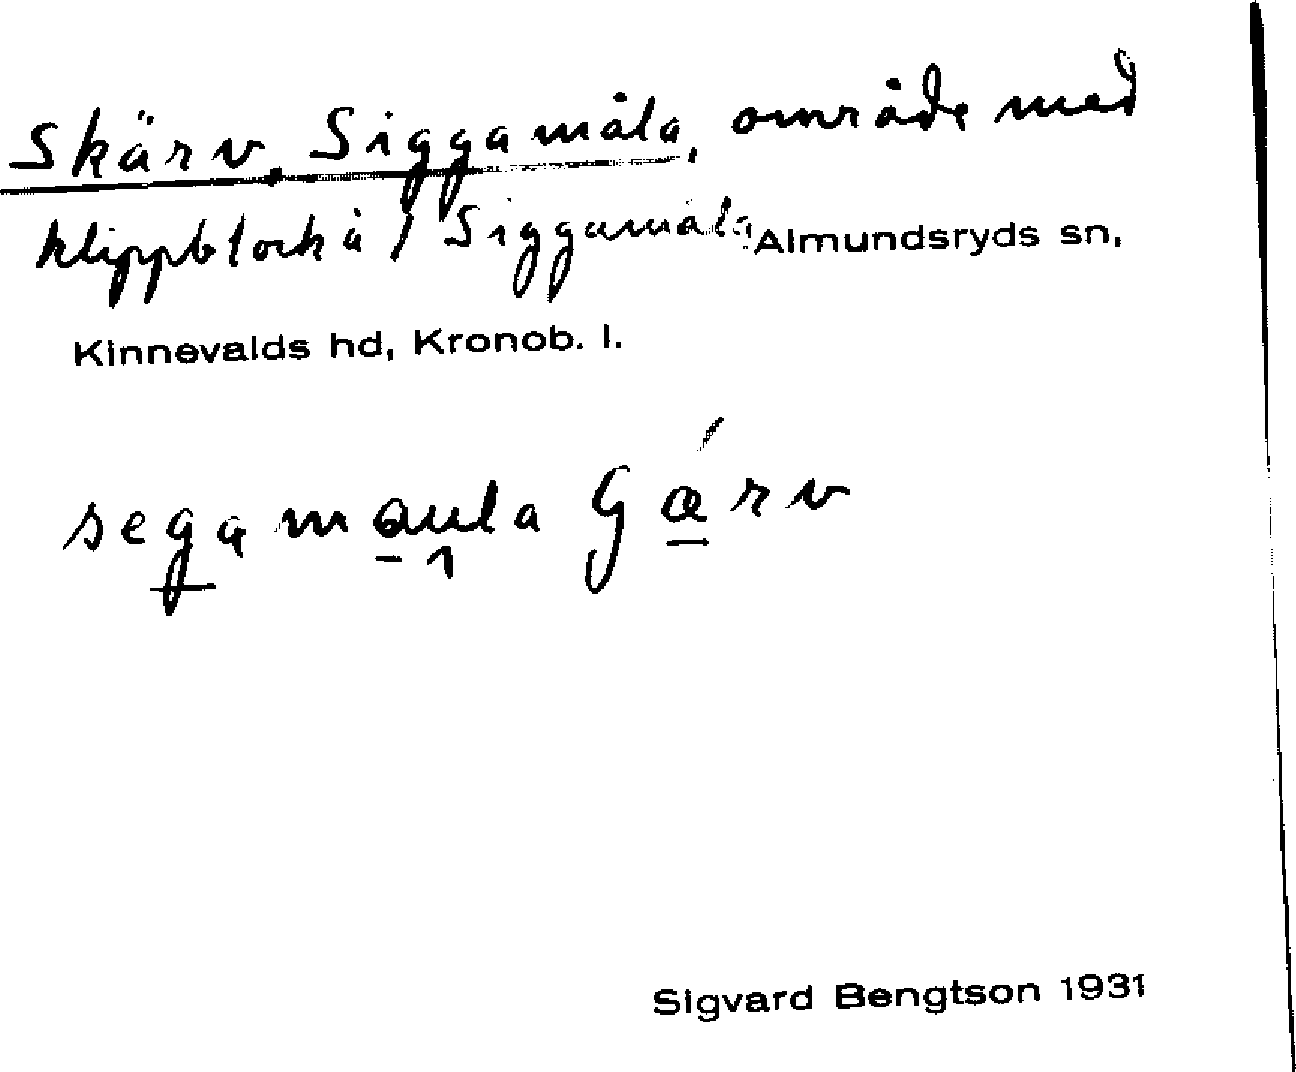 Skärv, Siggamåla, område med
klippblock å / Siggamåla Almundsryds sn,
Kinnevalds hd, Kronob. l.
segamaula Gǽrv
Sigvard Bengtson 1931